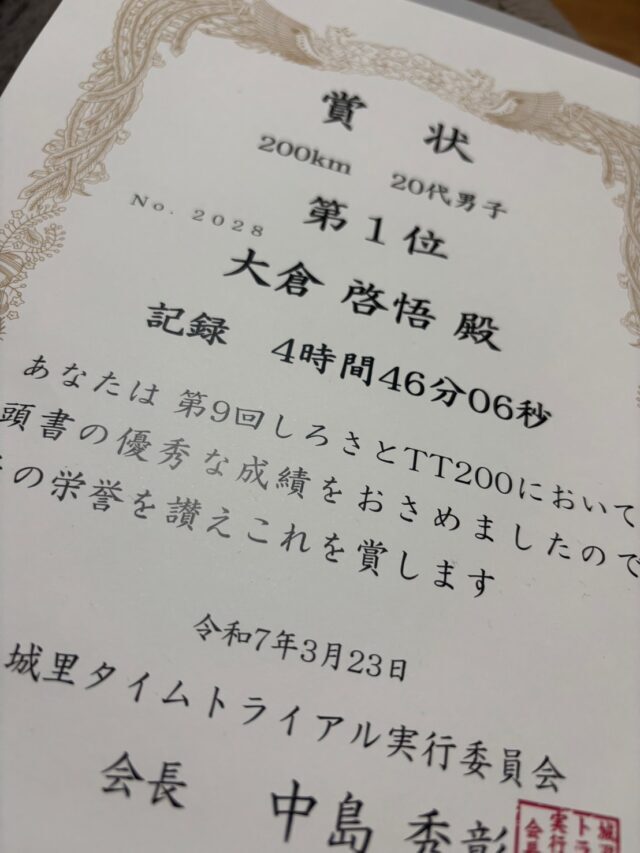 賞状
200km 20代男子
No. 2028
第1位
大倉 啓悟 殿
記録 4時間46分06秒
あなたは 第9回しろさとTT200において
頭書の優秀な成績をおさめましたので
の栄誉を讃えこれを賞します
令和7年3月23日
城里タイムトライアル実行委員会
会長 中島 秀彰
城里
トラ
実行
会長